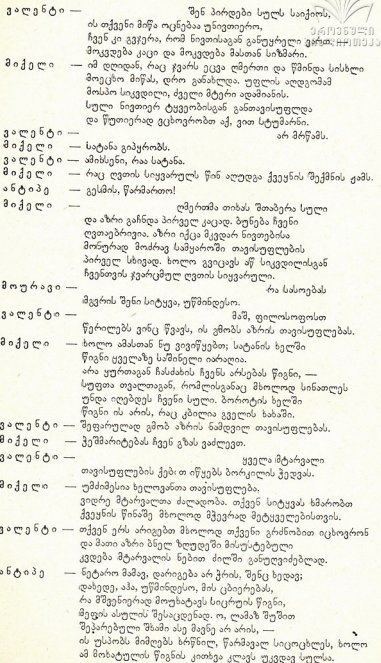 ვალენტი — შენ პირდები სულს საიქიოს,
ის თქვენი მიწა ოცნებაა უნივთიერო,
ჩვენ კი გვჯერა, რომ ნივთისაგან განუყრელი ვართ.
მოკვდება კაცი და მოკვდება მასთან სიზმარი.
მიქელი — იმ დღიდან, რაც ჯვარს ეცვა ღმერთი და წმინდა სისხლი
მოეცხო მიწას, დრო განახლდა. უფლის აღდგომამ
მოსპო სიკვდილი, ძველი მტერი ადამიანის.
სული ნივთიერ ტყვეობისგან განთავისუფლდა
და წუთიერად ვცხოვრობთ აქ, ვით სტუმარნი.
ვალენტი — არ მრწამს.
მიქელი — სატანა გიპყრობს.
ვალენტი — ამიხსენი, რაა სატანა.
მიქელი — რაც ღვთის სიყვარულს წინ აღუდგა ქვეყნის შექმნის ჟამს.
ანტიპე — გესმის, წარმართო!
მიქელი — ღმერთმა თიხას შთაბერა სული
და აზრი გაჩნდა პირველ კაცად. ბუნება ჩვენი
ღვთაებრივია. აზრი იქცა მკვდარ ნივთებისა
მონურად მოძრავ სამყაროში თავისუფლების
პირველ სხივად. ხოლო გვიცავს აწ სიკვდილისგან
ჩვენთვის ჯვარცმულ ღვთის სიყვარული.
მოურავი — რა სასოებას
იმგვრის შენი სიტყვა, უწმინდესო.
ვალენტი — მაშ, ფილოსოფოსთ
წერილებს ვინც წვავს, ის გმობს აზრის თავისუფლებას.
მიქელი — ხოლო ამასთან ნუ ვივიწყებთ; სატანის ხელში
წიგნი ყველაზე საშინელი იარაღია.
არა ყურთაგან ჩასძახის ჩვენს არსებას წიგნი, —
სუფთა თვალთაგან, რომლისგანაც მხოლოდ სინათლეს
უნდა იღებდეს ჩვენი სული. ბოროტის ხელში
წიგნი ის არის, რაც კბილია გველის ხახაში.
ვალენტი — შეფარულად გმობ აზრის ნამდვილ თავისუფლებას.
მიქელი — ჭეშმარიტებას ჩვენ გზას ვაძლევთ.
ვალენტი — ყველა მტარვალი
თავისუფლების ქებით იწყებს ბორკილის ჭედვას.
მიქელი — უმძიმესია ხელოვანთა თავისუფლება,
ვიდრე მტარვალთა ძალადობა. თქვენ სიტყვას ხმარობთ
ქვეყნის წინაშე მხოლოდ მჭევრად მეტყველებისთვის.
ვალენტი — თქვენ ერს არიგებთ მხოლოდ თქვენი გრძნობით იცხოვრონ
და მათი აზრი ბნელ ზღუდეში მისუსტებული
კვდება მტარვალის ნებით ძილში განუღვიძებლად.
ანტიპე — ნეტარო მამავ, დარიგება არ ჭრის, შენც ხედავ;
დახედე, აჰა, უწმინდესო, მის ცბიერებას,
რა მშვენიერად მოუხატავს სიცრუის წიგნი,
მეფის ასულის შესაცდენად. ო, ლამაზ შუშით
შეპარებული შხამი ასე მავნე არ არის, —
ის უსპობს მიმღებს ხრწნილ, წარმავალ სიცოცხლეს, ხოლო
ამ მოხატულის წიგნის კითხვა კლავს უკვდავ სულსა.